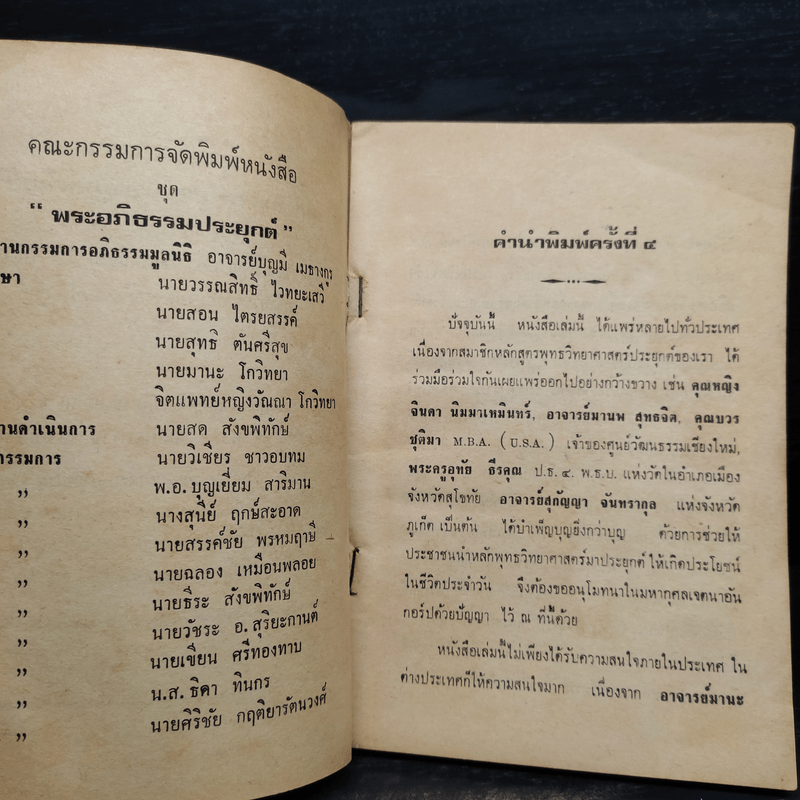 คณะกรรมการจัดพิมพ์หนังสือ
ชุด
“ พระอภิธรรมประยุกต์ ”
านกรรมการอภิธรรมมูลนิธิ อาจารย์บุญมี เมธางกูร
ษา นายวรรณสิทธิ์ ไวทยะเสวี
นายสอน ไตรยสรรค์
นายสุทธิ ตันศรีสุข
นายมานะ โกวิทยา
จิตแพทย์หญิงวัณณา โกวิทยา
านดำเนินการ นายสด สังขพิทักษ์
กรรมการ นายวิเชียร ชาวอบทม
„ พ.อ. บุญเยี่ยม สาริมาน
„ นางสุนีย์ ฤกษ์สะอาด
„ นายสรรค์ชัย พรหมฤาษี
„ นายฉลอง เหมือนพลอย
„ นายธีระ สังขพิทักษ์
„ นายวัชระ อ. สุริยะกานต์
„ นายเขียน ศรีทองทาบ
„ น.ส. ธิดา ทินกร
„ นายศิริชัย กฤติยารัตนวงศ์
„
คำนำพิมพ์ครั้งที่ ๔
ปัจจุบันนี้ หนังสือเล่มนี้ ได้แพร่หลายไปทั่วประเทศ
เนื่องจากสมาชิกหลักสูตรพุทธวิทยาศาสตร์ประยุกต์ของเรา ได้
ร่วมมือร่วมใจกันเผยแพร่ออกไปอย่างกว้างขวาง เช่น คุณหญิง
จินดา นิมมาเหมินทร์, อาจารย์มานพ สุทธจิต, คุณบวร
ชุติมา M.B.A. (U.S.A.) เจ้าของศูนย์วัฒนธรรมเชียงใหม่,
พระครูอุทัย ธีรคุณ ป.ธ. ๔. พ.ธ.บ. แห่งวัดในอำเภอเมือง
จังหวัดสุโขทัย อาจารย์สุกัญญา จันทรากุล แห่งจังหวัด
ภูเก็ต เป็นต้น ได้บำเพ็ญบุญยิ่งกว่าบุญ ด้วยการช่วยให้
ประชาชนนำหลักพุทธวิทยาศาสตร์มาประยุกต์ ให้เกิดประโยชน์
ในชีวิตประจำวัน จึงต้องขออนุโมทนาในมหากุศลเจตนาอัน
กอร์ปด้วยปัญญา ไว้ ณ ที่นี้ด้วย
หนังสือเล่มนี้ไม่เพียงได้รับความสนใจภายในประเทศ ใน
ต่างประเทศก็ให้ความสนใจมาก เนื่องจาก อาจารย์มานะ